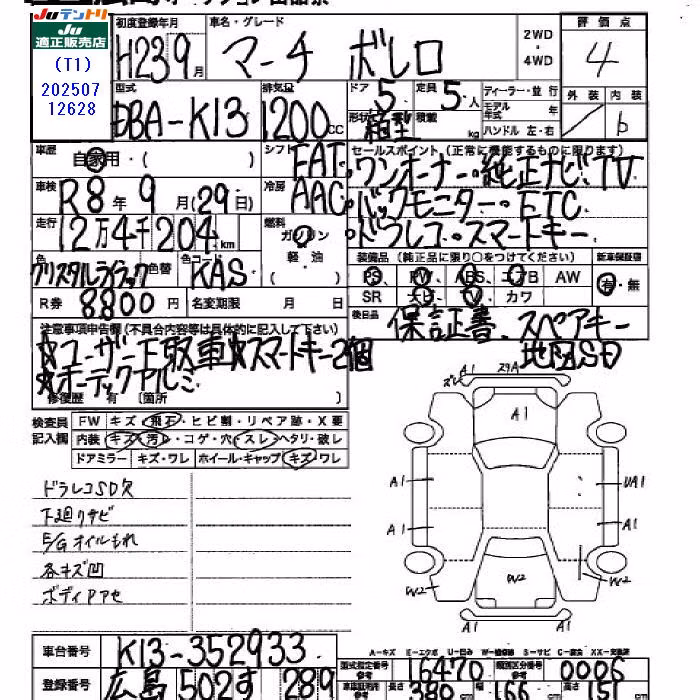 Juテントリ
Ju
適正販売店
(T1)
202507
12628
初度登録年月
H23 9月
車名・グレード
マーチ ボレロ
2WD
・
4WD
評価点
4
型式
DBA-K13
排気量
1200cc
ドア 5
定員 5人
形状
積載 kg
ディーラー・並行
モデル年式 年
ハンドル 左・右
外装
内装
b
車歴
自家用・( )
シフト
FAT
セールスポイント(正常に機能するものに限り)
・ワンオーナー・純正ナビ・TV
・バックモニター・ETC
・ドラレコ・スマートキー
車検
R8年9月(29日)
冷房
AAC
走行
12万4千204km
燃料
ガソリン
軽・油
( )
色
クリスタルライラック
色替
色コード
KAS
装備品(純正品に限り○をつけてください)
新車保証書
PS PW ABS エアB AW
SR ナビ TV カワ
有・無
R券 8800円
名変期限 月 日
後日品
保証書、スペアキー
地図SD
注意事項申告欄(不具合内容等は具体的に記入して下さい)
☆ユーザー下取車☆スマートキー2個
☆オーテックアルミ
修復歴 有 〔箇所 〕
検査員
記入欄
FW キズ・飛石・ヒビ割・リペア跡・X要
内装 キズ・汚レ・コゲ・穴・スレ・ヘタリ・破レ
ドアミラー キズ・ワレ ホイール・キャップ キズ・ワレ
ドラレコSD欠
下廻りサビ
E/Gオイルもれ
各キズ凹
ボディアセ
A1 29A
A1
A1 UA1
A1 A1
W2 W2 W2
A1 A1
A-キズ E-エクボ U-凹み W-補修跡 S-サビ C-腐食 XX-交換済
車台番号 K13-352933
型式指定番号 16470
類別区分番号 0006
登録番号 広島 502す 289
長さ 380
166
高さ 151